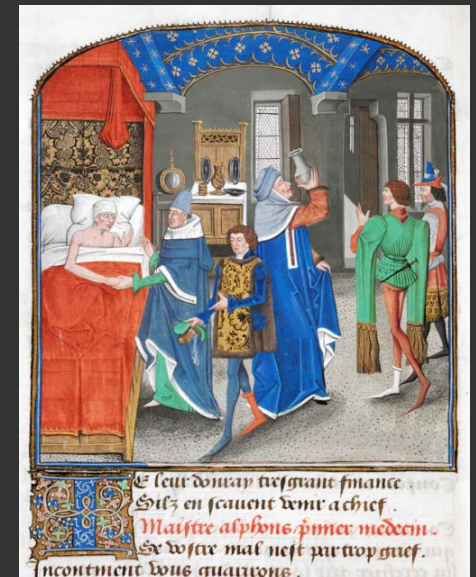 Et leur donray tresgrant finance
Silz en scauent venir a chief.
Maistre alphons p̄mier medecin.
De vostre mal nest par trop grief.
Incontinent vous guarirons.